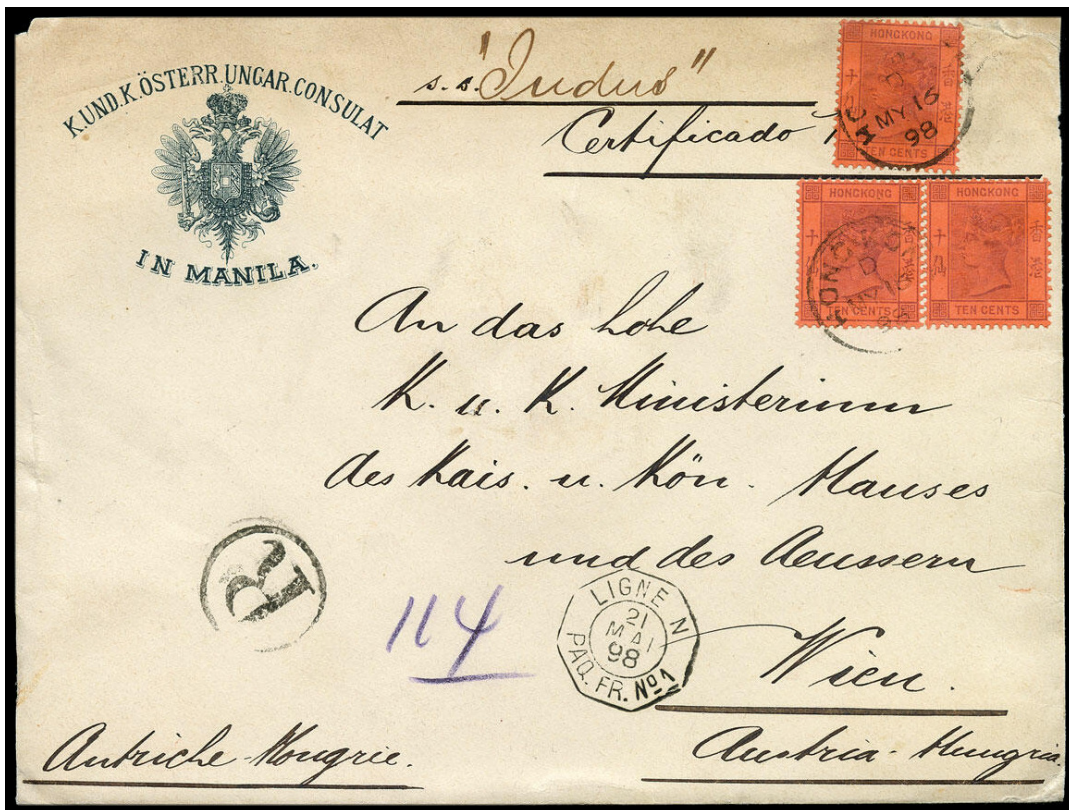 K.UND.K.ÖSTERR.UNGAR.CONSULAT
IN MANILA.
s.s. "Indus"
Certificado
HONGKONG
TEN CENTS
MY 16
98
HONGKONG
TEN CENTS
HONGKONG
TEN CENTS
An das hohe
K. u. K. Ministerium
des Kais. u. Kön. Hauses
und des Aeussern
Wien.
R
114
LIGNE N
21
MAI
98
PAQ. FR. No 1
Autriche-Hongrie.
Austria-Hungria.